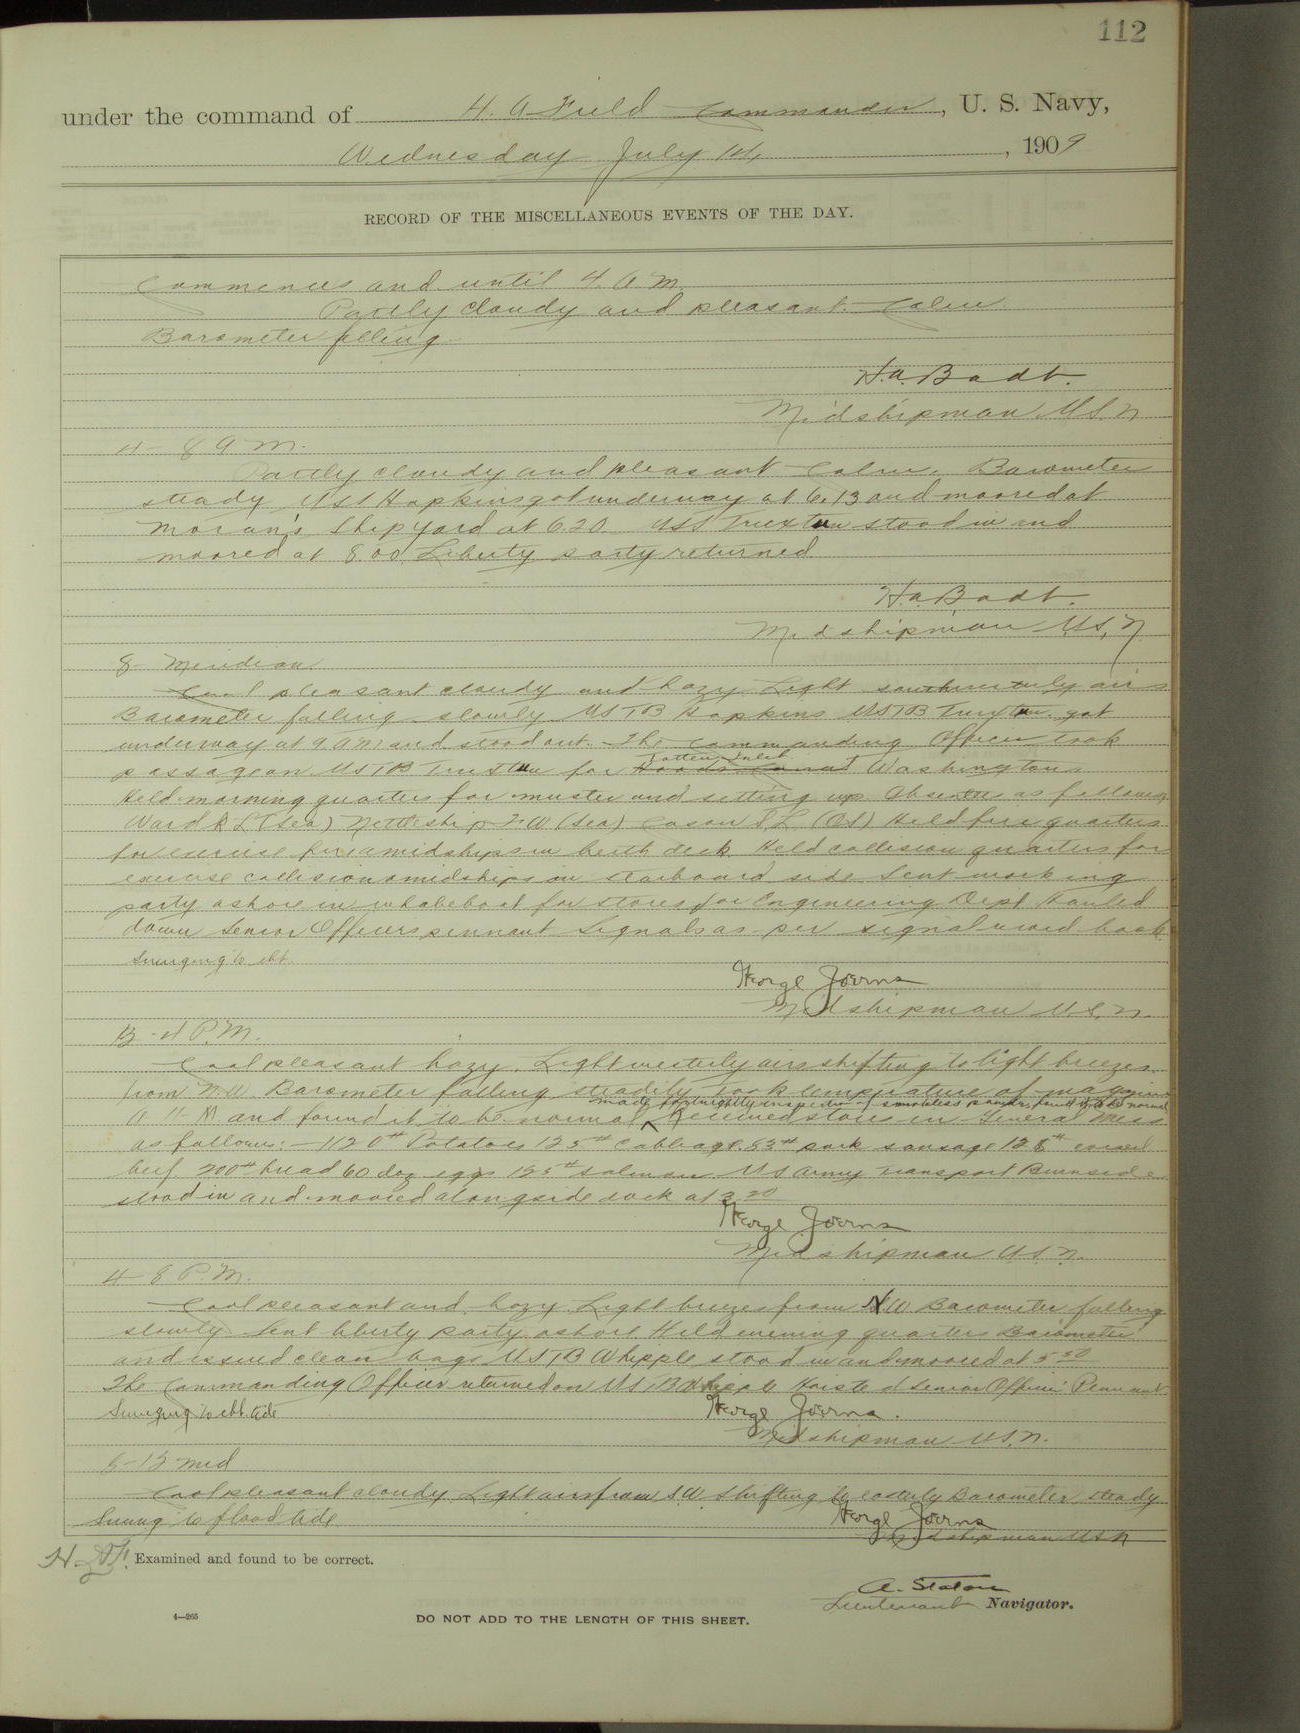 112
under the command of H. A Field Commander, U. S. Navy,
Wednesday July 14, 1909
RECORD OF THE MISCELLANEOUS EVENTS OF THE DAY.
Commences and until 4. A M.
Partly cloudy and pleasant. Calm
Barometer falling
H.a. Badt.
Midshipman U.S.N
4 - 8 A m.
Partly cloudy and pleasant Calm. Barometer
steady USS Hopkins got underway at 6.13 and moored at
Moran's Shipyard at 620 USS Truxtun stood in and
moored at 8.00 Liberty party returned
H.a. Badt.
Midshipman U.S.N
8 - Meridian
Cool pleasant cloudy and hazy Light southwesterly airs
Barometer falling slowly USTB Hopkins USTB Truxtun got
underway at 9 AM and stood out. The Commanding Officer took
passage on USTB Truxtun for Hoods Canal Totten Inlet Washington
Held morning quarters for muster and setting up Absentees as follows
Ward R L (Sea) Nettleship F W (Sea) Cason S L (OS) Held fire quarters
for exercise fire amidships in berth deck Held collision quarters for
exercise collision amidships on starboard side Sent working
party ashore in whaleboat for stores for Engineering Dept Hauled
down Senior Officers pennant Signals as per signal record book
Swinging to ebb.
George Joerns
Midshipman U.S.N.
12 - 4 P.M.
Cool pleasant hazy. Light westerly airs shifting to light breezes
from N.W. Barometer falling steadily Took temperature of magazine
made fortnightly inspection of smokeless powder, found it to be normal
A 11- M and found it to be normal Received stores in General Mess
as follows: - 1120# Potatoes 125# Cabbage 53# pork sausage 128# corned
beef 200# bread 60 doz eggs 125# salmon. US Army Transport Burnside
stood in and moored alongside dock at 3.20
George Joerns
Midshipman U.S.N.
4 - 8 P.M.
Cool pleasant and hazy. Light breezes from N.W. Barometer falling
slowly Sent liberty party ashore Held evening quarters Barometer
and issued clean bags USTB Whipple stood in and moored at 5 50
The Commanding Officer returned on USTB Whipple Hoisted Senior Officers Pennant
Swinging to ebb tide
George Joerns.
Midshipman U.S.N.
8-12 Mid
Cool pleasant cloudy Light airs from S.W. shifting to easterly Barometer steady
Swung to flood tide
George Joerns
Midshipman USN
H. A. F. Examined and found to be correct.
A. Staton
Lieutenant Navigator.
4—265
DO NOT ADD TO THE LENGTH OF THIS SHEET.